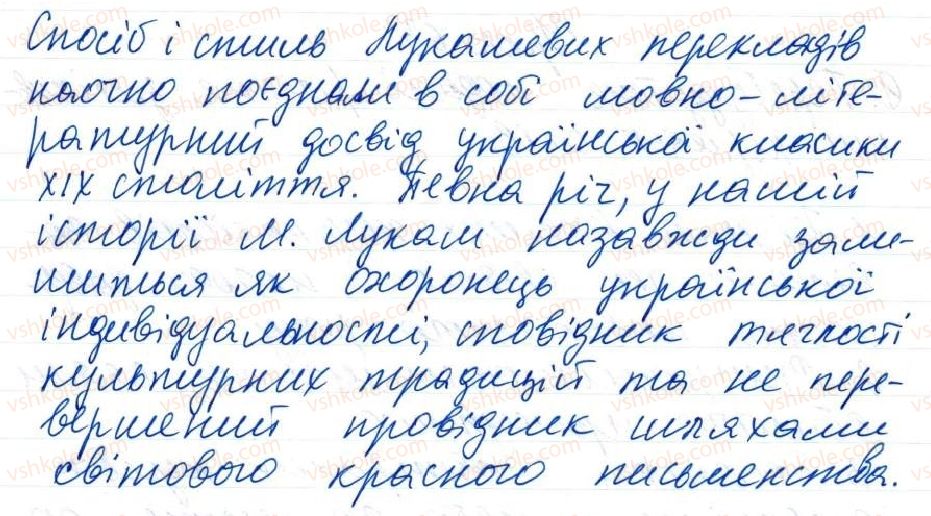 Спосіб і стиль Лукашевих перекладів
наочно поєднали в собі мовно-літе-
ратурний досвід української класики
XIX століття. Певна річ, у нашій
історії М. Лукаш назавжди зали-
шиться як охоронець української
індивідуальності, сповідник тяглості
культурних традицій та не пере-
вершений провідник шляхами
світового красного письменства.